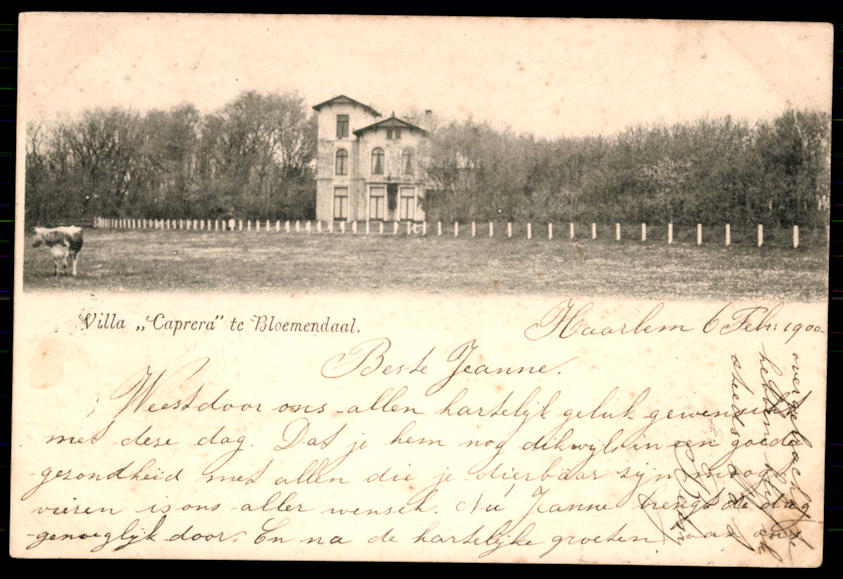 Villa „Caprera" te Bloemendaal.
Haarlem 6 Feb: 1900
Beste Jeanne.
Weest door ons allen hartelijk geluk gewenscht
met deze dag. Dat je hem nog dikwijls in een goede
gezondheid met allen die je dierbaar zijn moogt
vieren is ons aller wensch. Nu Janne brengt de dag
genoegelijk door. En na de hartelijke groeten van ons